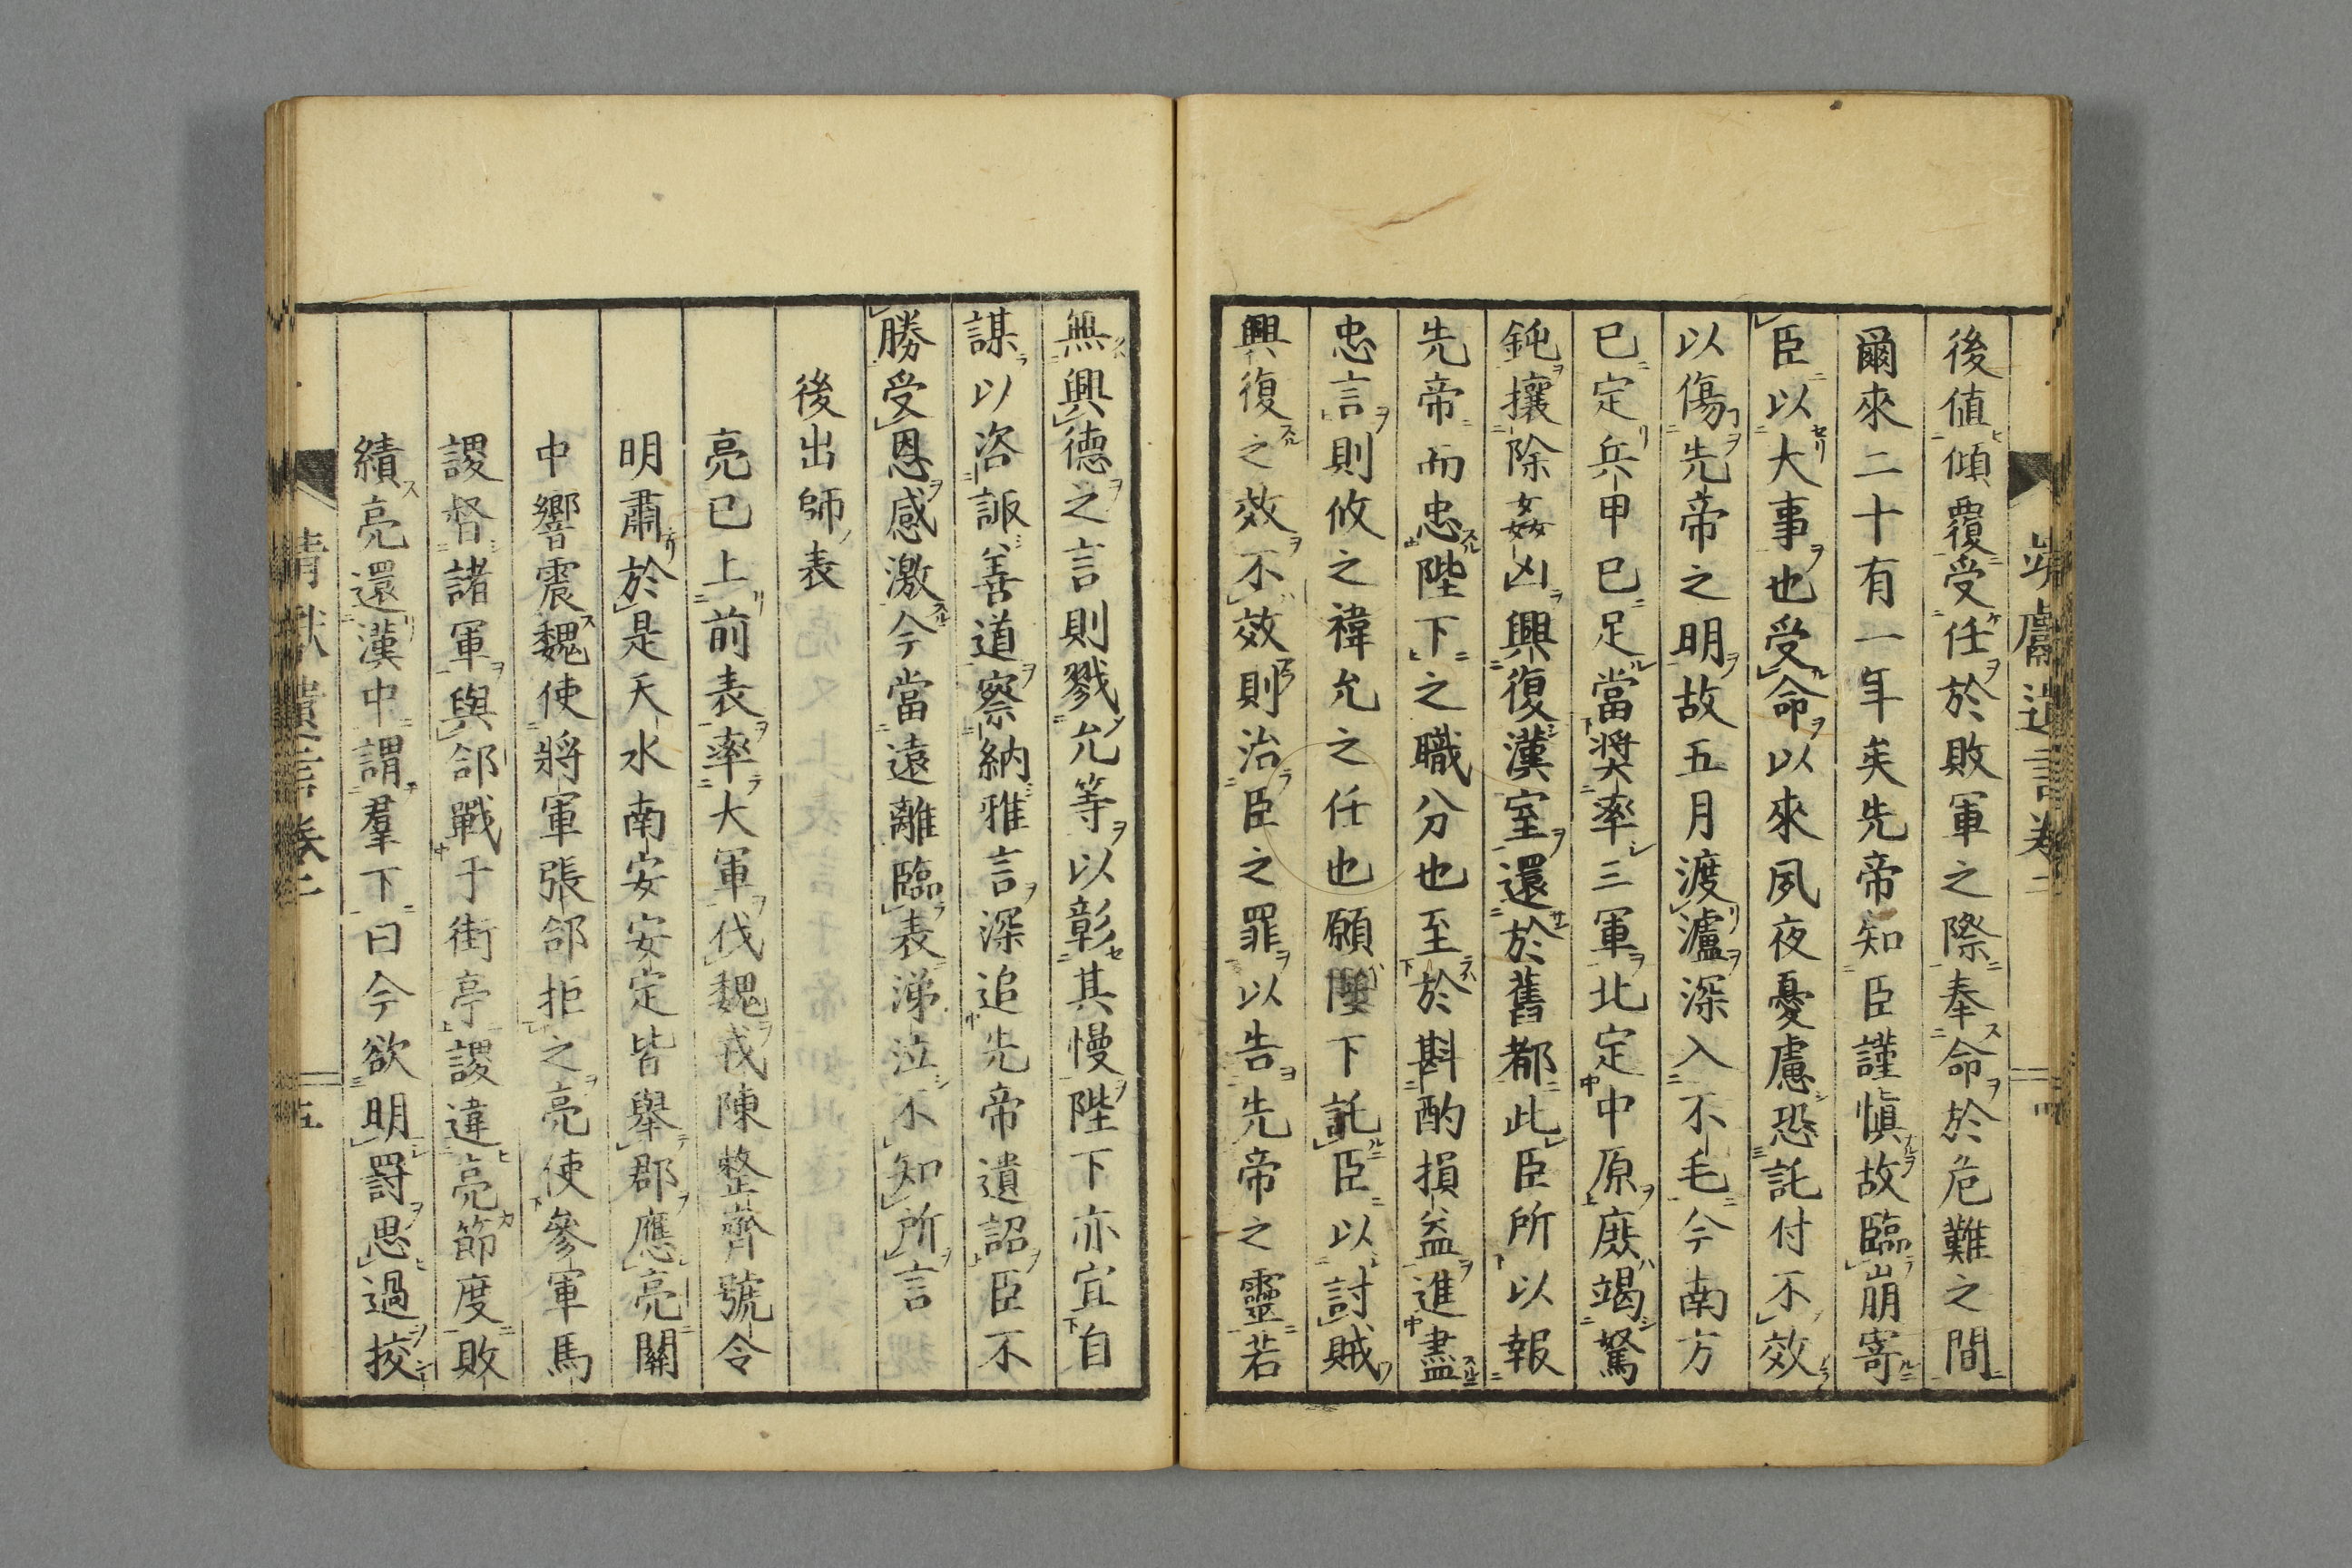 靖獻遺言卷二
四
後値傾覆受任於敗軍之際奉命於危難之間
爾來二十有一年矣先帝知臣謹愼故臨崩寄
臣以大事也受命以來夙夜憂慮恐託付不效
以傷先帝之明故五月渡瀘深入不毛今南方
已定兵甲已足當奬率三軍北定中原庶竭駑
鈍攘除姦凶興復漢室還於舊都此臣所以報
先帝而忠陛下之職分也至於斟酌損益進盡
忠言則攸之禕允之任也願陛下託臣以討賊
興復之效不效則治臣之罪以告先帝之靈若
無興德之言則戮允等以彰其慢陛下亦宜自
謀以咨諏善道察納雅言深追先帝遺詔臣不
勝受恩感激今當遠離臨表涕泣不知所言
後出師表
亮已上前表率大軍伐魏戎陳整齊號令
明肅於是天水南安安定皆擧郡應亮關
中響震魏使將軍張郃拒之亮使參軍馬
謖督諸軍與郃戰于街亭謖違亮節度敗
績亮還漢中謂羣下曰今欲明罸思過挍
靖獻遺言卷二
五